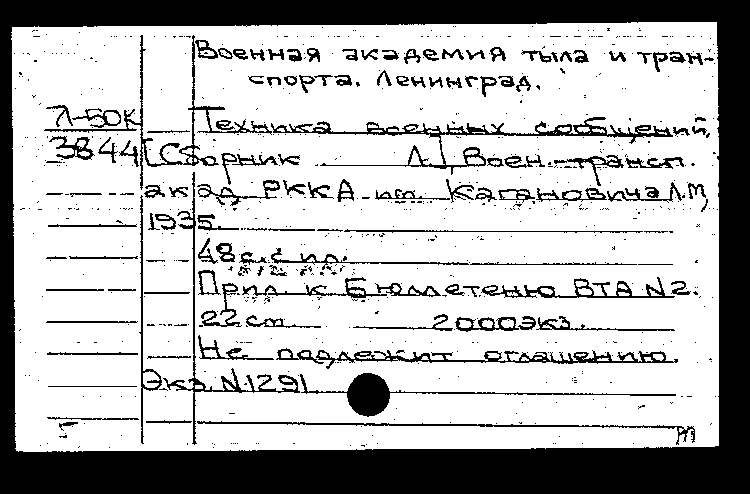 Военная академия тыла и тран-
спорта. Ленинград.
Л-50К
Техника военных сообщений.
3844 [Сборник. Л.], Воен.-трансп.
акад. РККА им. Кагановича Л.М,
1935.
48с.с ил.
Прил. к Бюллетеню ВТА N2.
22см 2000экз.
Не подлежит оглашению.
Экз. N1291
5